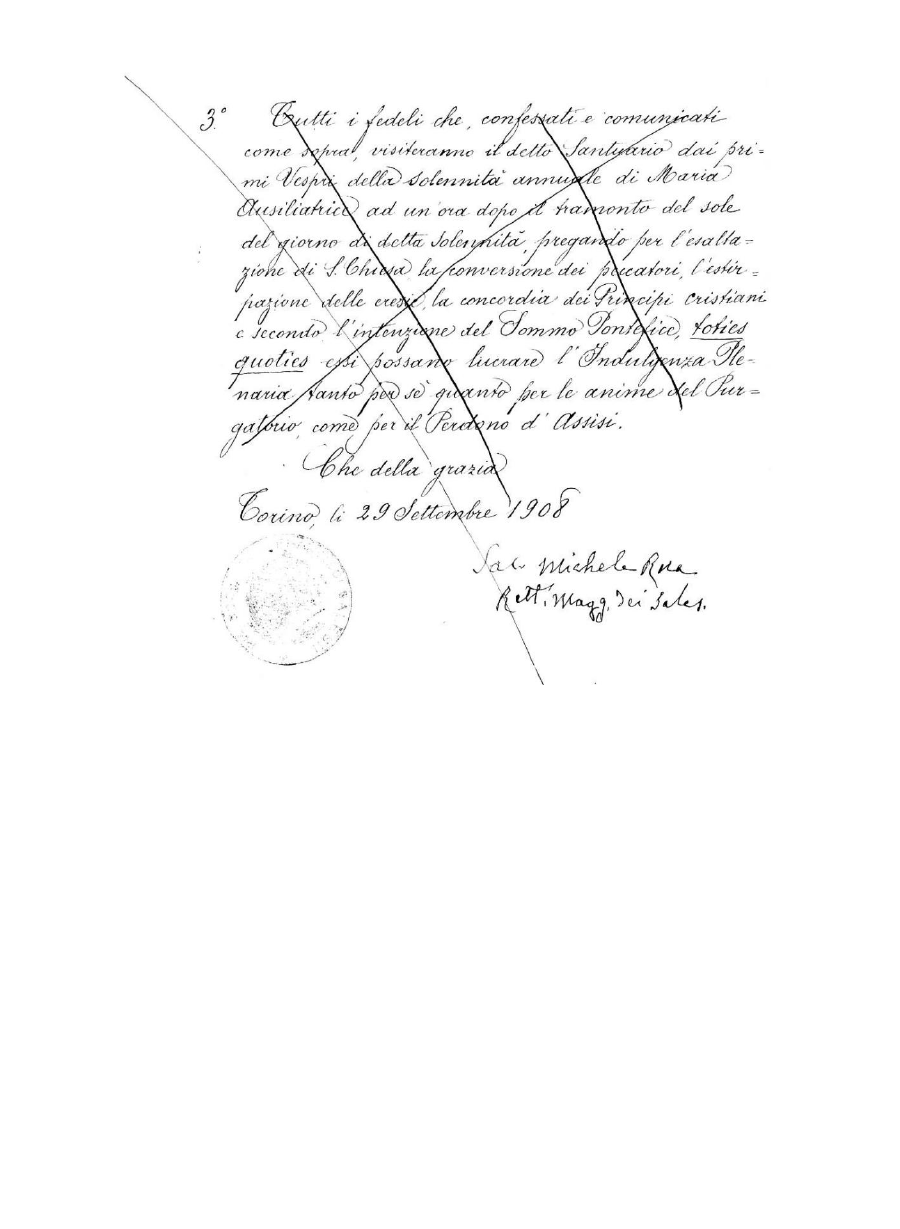 3.° Tutti i fedeli che, confessati e comunicati
come sopra, visiteranno il detto Santuario dai pri=
mi Vespri della Solennità annuale di Maria
Ausiliatrice ad un'ora dopo il tramonto del sole
del giorno di detta Solennità, pregando per l'esalta=
zione di S. Chiesa la conversione dei peccatori, l'estir=
pazione delle eresie, la concordia dei Principi cristiani
e secondo l'intenzione del Sommo Pontefice, toties
quoties essi possano lucrare l'Indulgenza Ple=
naria tanto per sè quanto per le anime del Pur=
gatorio, come per il Perdono d'Assisi.
Che della grazia
Torino, li 29 Settembre 1908
Sac. Michele Rua
Rett. Magg. dei Sales.